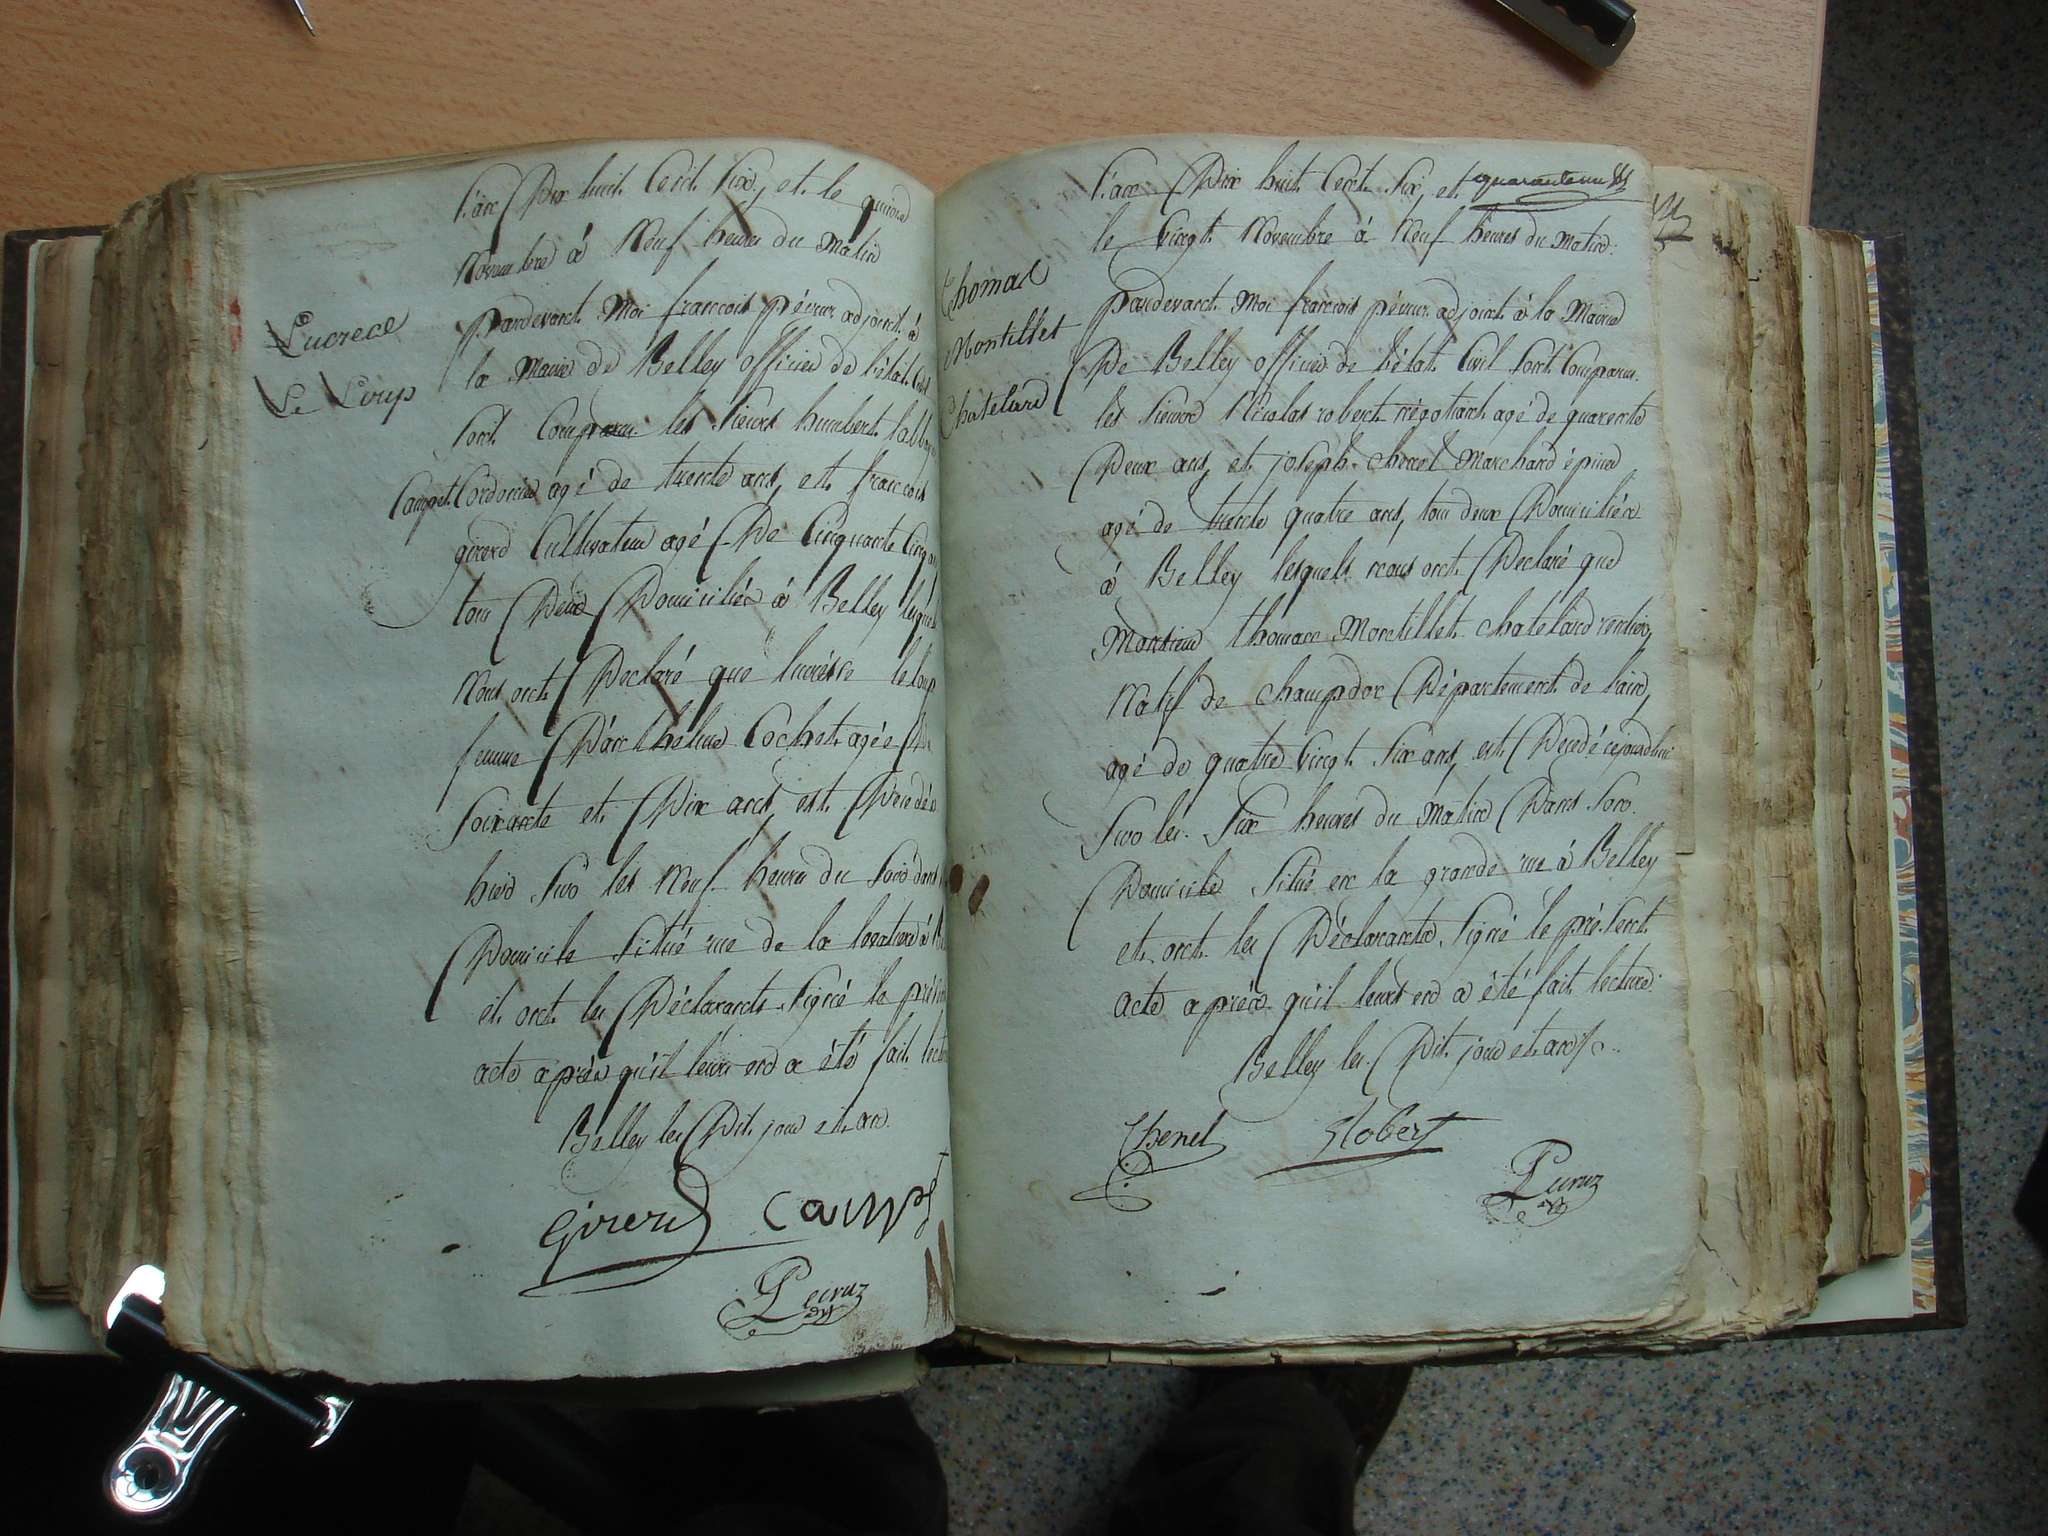 Lucrece
Le Loup
l'an Dix huit Cent Six, et le quinze
Novembre à Neuf heures du Matin
pardevant Moi françois péruz adjoint à
la Mairie de Belley officier de l'état Civil
sont Comparu les sieurs humbert
Campet Cordonnier agé de trente ans, et françois
girerd Cultivateur agé De Cinquante Cinq
tous Deux Domiciliés à Belley lesquels
Nous ont Declaré que lucrésse leloup
femme D'anthelme Cochet agée De
soixante et Dix ans, est Décédée
hier sur les Neuf heures du soir dans
Domicile Situé rue de la
et ont les Déclarants signé le présent
acte après qu'il leurs en a été fait lecture
Belley les Dit jour et an.
Girerd Camp
Péruz
Thomas
Montillet
Chatelard
l'an Dix huit Cent Six, et
le Vingt Novembre à Neuf heures du Matin.
pardevant Moi françois péruz adjoint à la Mairie
De Belley officier de l'état Civil sont Comparu
les sieurs Nicolas robert négotiant agé de quarente
Deux ans, et joseph chenel Marchand épicier
agé de trente quatre ans, tous deux Domiciliés
à Belley lesquels nous ont Declaré que
Monsieur thomas Montillet chatelard rentier,
Natif de champdor Département de l'ain,
agé de quatre Vingt Six ans, est Decedé cejourdhui
sur les Six heures du Matin Dans son
Domicile Situé en la grande rue à Belley
et ont les Déclarants signé le présent
acte après qu'il leurs en a été fait lecture
Belley les Dit jour et an
Chenel Robert
Péruz